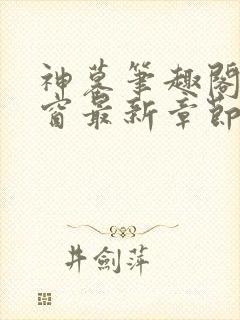 神墓笔趣阁
窗最新章节
井剑萍